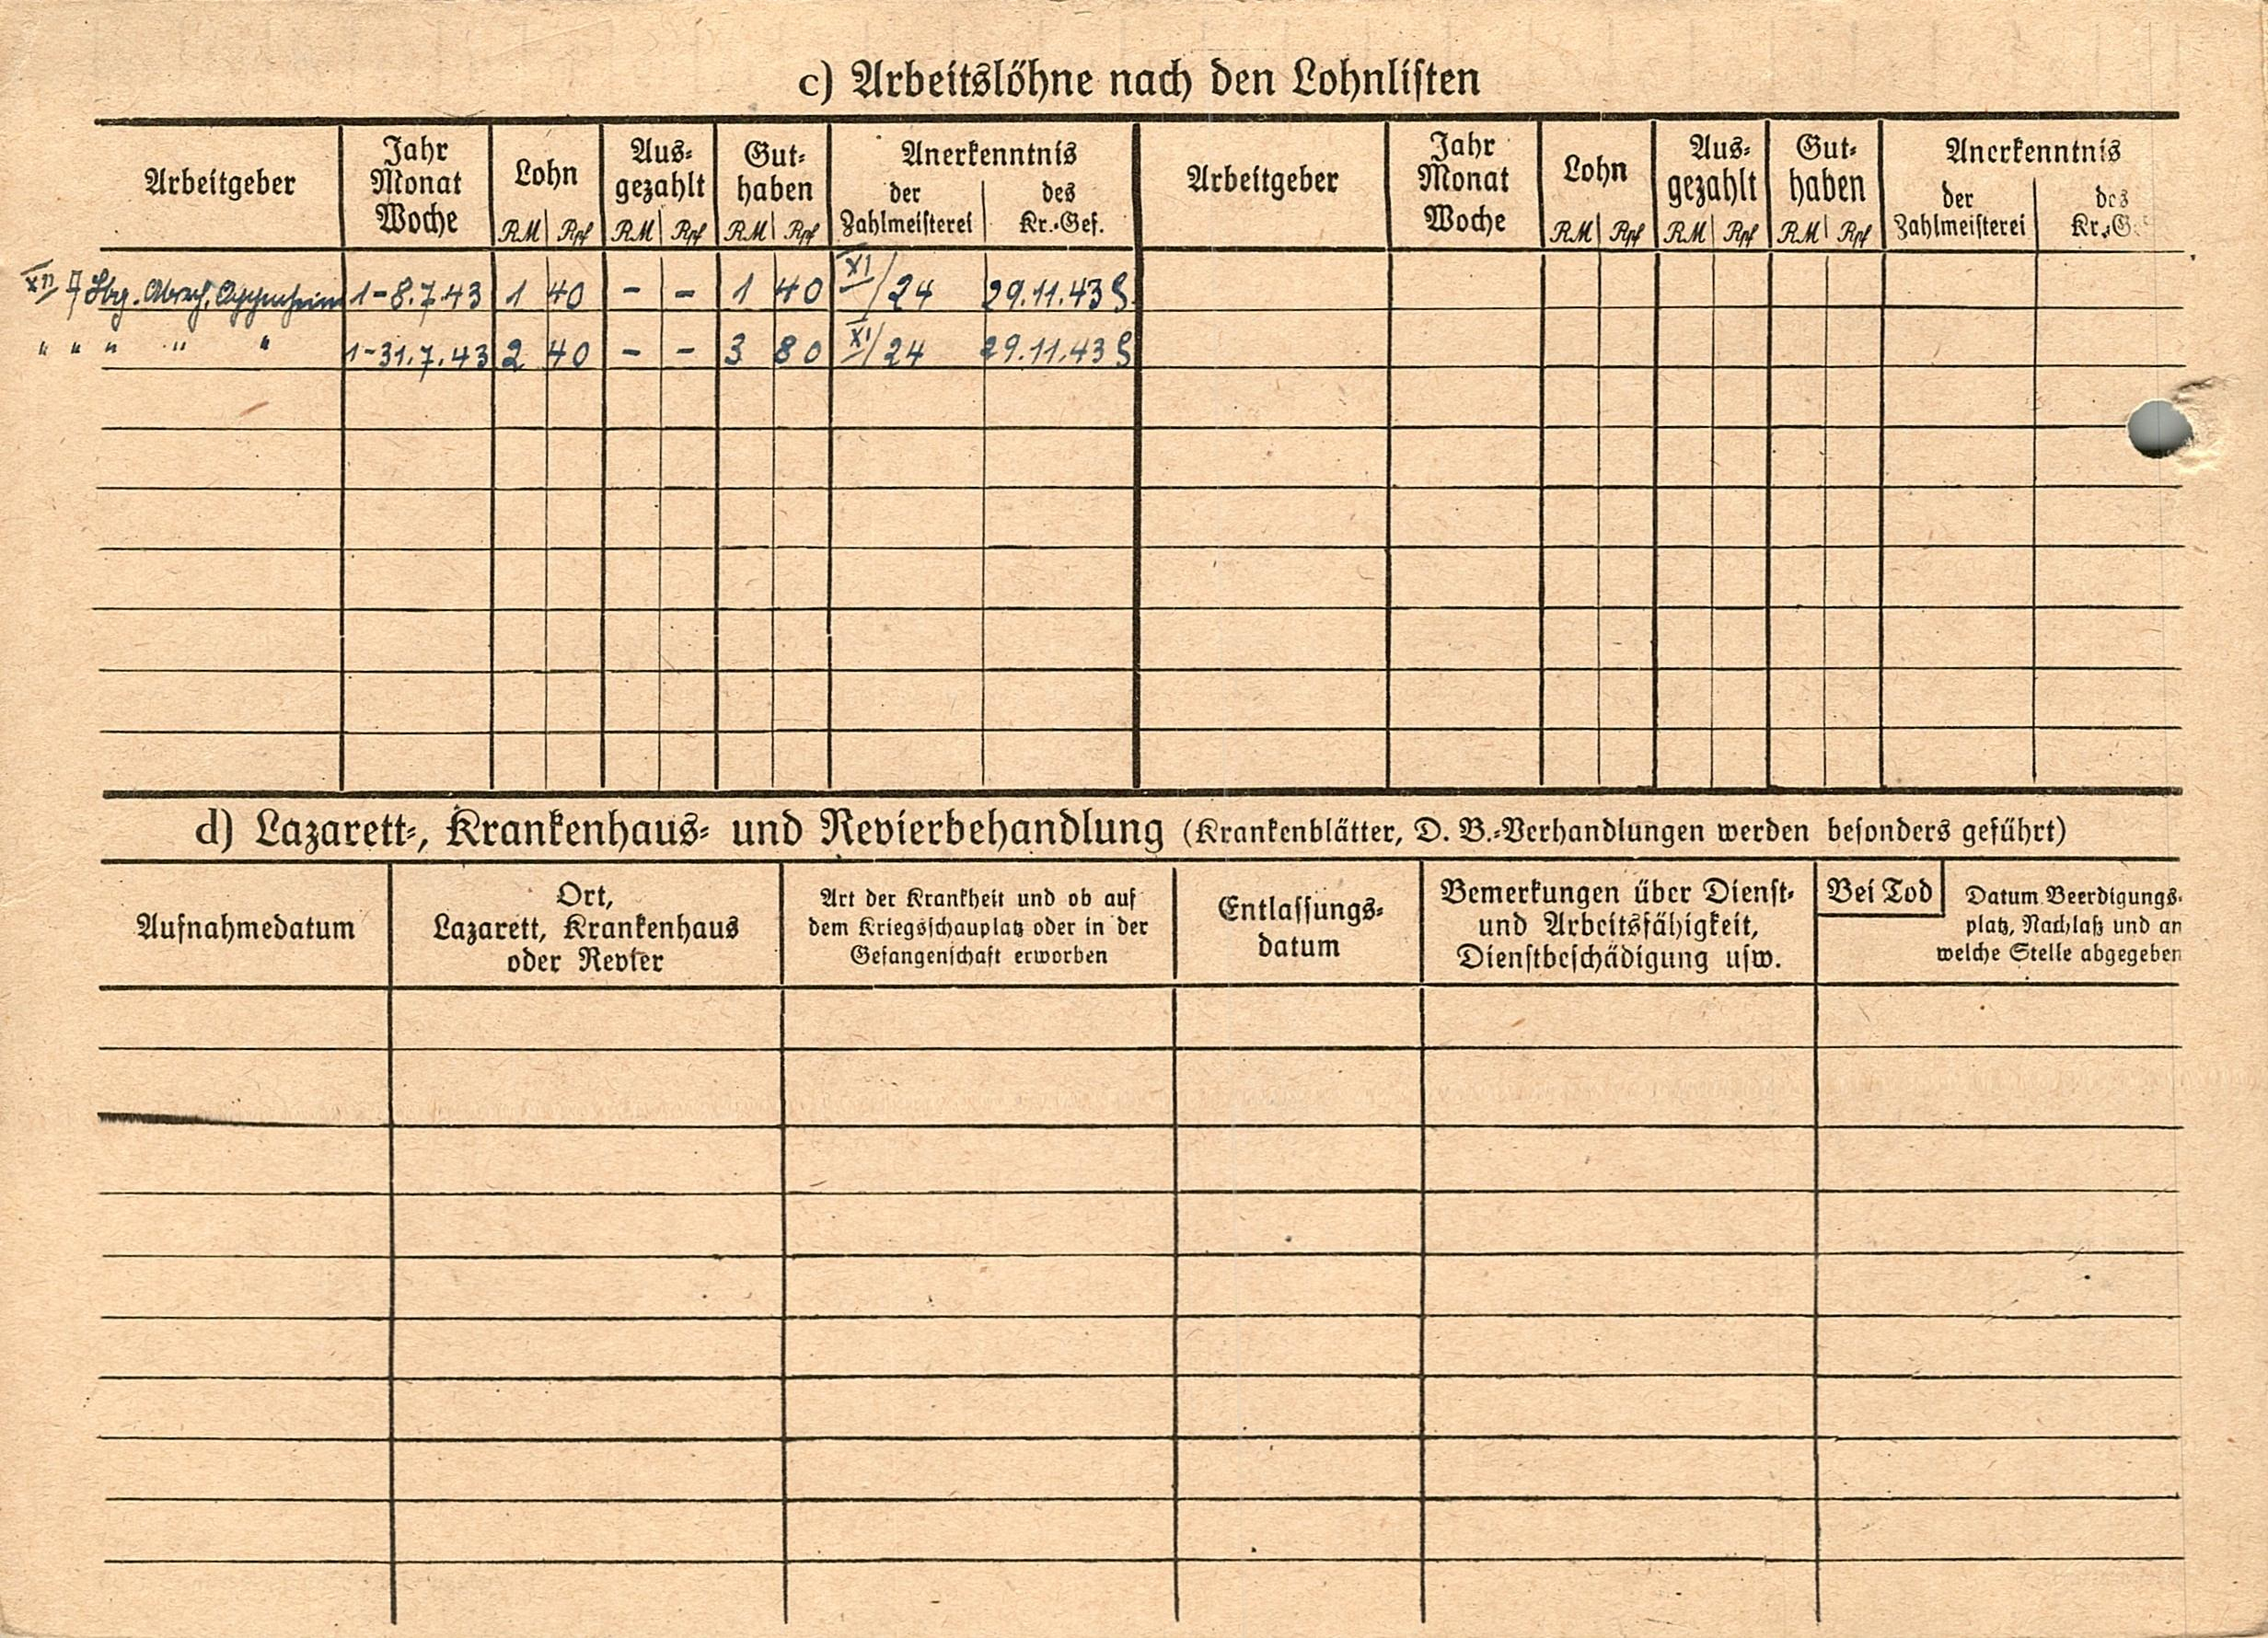 c) Arbeitslöhne nach den Lohnlisten
Arbeitgeber
Jahr
Monat
Woche
Lohn
RM Rpf
Aus-
gezahlt
RM Rpf
Gut-
haben
RM Rpf
Anerkenntnis
der
Zahlmeisterei
des
Kr.-Gef.
Arbeitgeber
Jahr
Monat
Woche
Lohn
RM Rpf
Aus-
gezahlt
RM Rpf
Gut-
haben
RM Rpf
Anerkenntnis
der
Zahlmeisterei
des
Kr.-G
Oppenheim 1-8.7.43 1 40 - - 1 40 XI/24 29.11.43 S
" " " " " 1-31.7.43 2 40 - - 3 80 XI/24 29.11.43 S
d) Lazarett-, Krankenhaus- und Revierbehandlung (Krankenblätter, D. B.-Verhandlungen werden besonders geführt)
Aufnahmedatum
Ort,
Lazarett, Krankenhaus
oder Revier
Art der Krankheit und ob auf
dem Kriegsschauplatz oder in der
Gefangenschaft erworben
Entlassungs-
datum
Bemerkungen über Dienst-
und Arbeitsfähigkeit,
Dienstbeschädigung usw.
Bei Tod
Datum Beerdigungs-
platz, Nachlaß und an
welche Stelle abgegeben